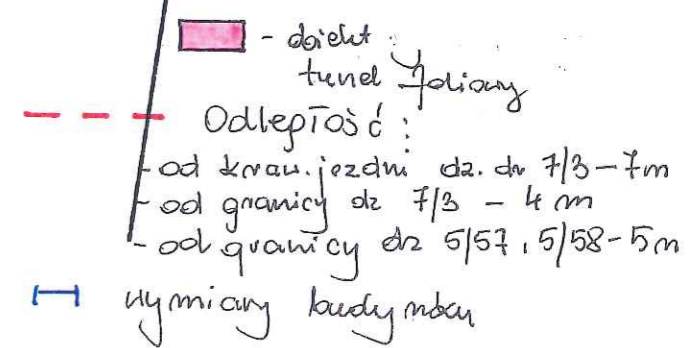 - obiekt :
tunel foliowy
Odległość :
- od kraw. jezdni dz. dr 7/3 - 7m
- od granicy dz 7/3 - 4 m
- od granicy dz 5/57, 5/58 - 5m
wymiary budynku